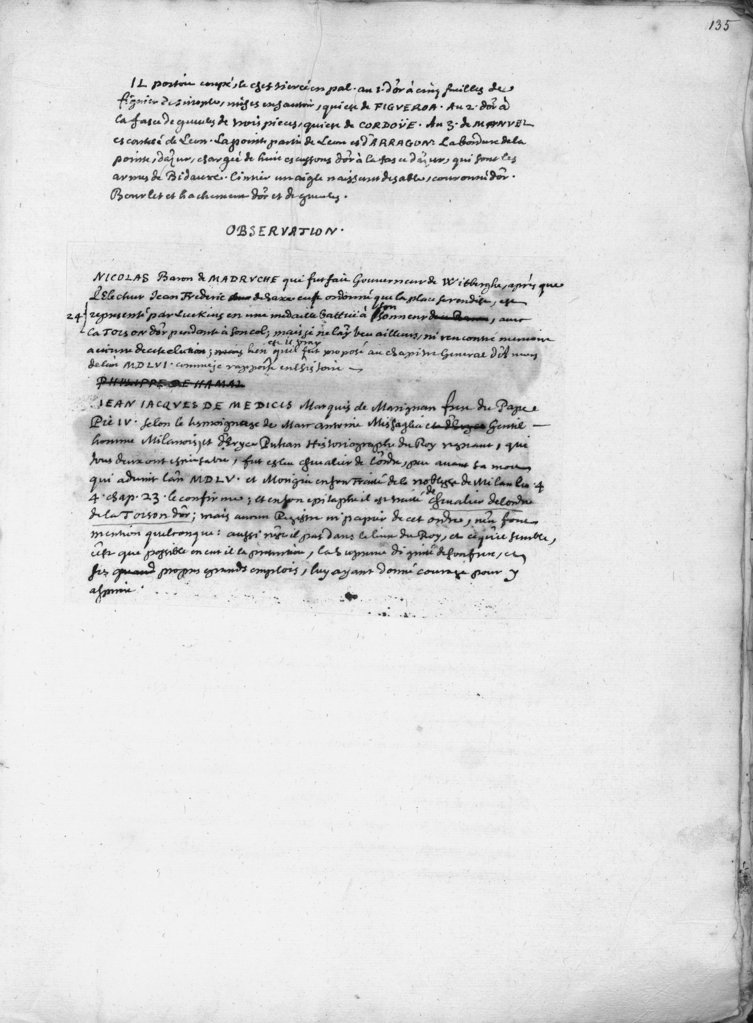 135
IL portoit coupé, le chef tiercé en pal. au 1. d'or à cinq fueilles de
figuier de sinople, mises en sautoir, qui est de FIGVEROA. Au 2. d'or à
la fasce de gueules de trois pieces, qui est de CORDOÜE. Au 3. de MANVEL
escartelé de Leon. La pointe partie de Leon et d'ARRAGON. La bordure de la
pointe, d'azur, chargée de huit escussons d'or à la fasce d'azur, qui sont les
armes de Bidaure. Cimier un aigle naissant de sable, couronné d'or.
Bourlet et hachemens d'or et de gueules.
OBSERVATION.
NICOLAS Baron de MADRVCHE qui fut fait Gouverneur de Witberghe, après que
l'Electeur Jean Frederic de Saxe eust ordonné que la place se rendist, est
24 representé par Luckius en une medaille battüe à son honneur, avec
la TOISON d'or pendant à son col; mais je ne l'ay veu ailleurs, ni rencontré memoire
aucune de cette election; bien est il vray qu'il fut proposé au chapitre General d'Anvers
de l'an MDLVI. comme je rapporte en l'histoire
PHILIPPE DE HAMAL
JEAN JACQVES DE MEDICIS Marquis de Marignan frere du Pape
Pie IV. selon le tesmoignage de Marc Antoine Missaglia Gentil-
homme Milanois, et d'Eryce Putean Historiographe du Roy regnant, qui
tous deux ont escrit sa vie, fut esleu chevalier de l'ordre, peu avant sa mort
qui advint l'an MDLV. et Morigia en son Traité de la noblesse de Milan liv. 4
4 chap. 23. le confirme; et en son epitaphe il est traité de chevalier de l'ordre
de la TOISON d'or; mais aucun Registre ni papier de cet ordre, n'en font
mention quelconque: aussi n'est il pas dans le livre du Roy, et ce qui semble,
c'est que possible en eut il la pretention, la supreme dignité de son frere, et
ses propres grands emplois, luy ayant donné courage pour y
aspirer.